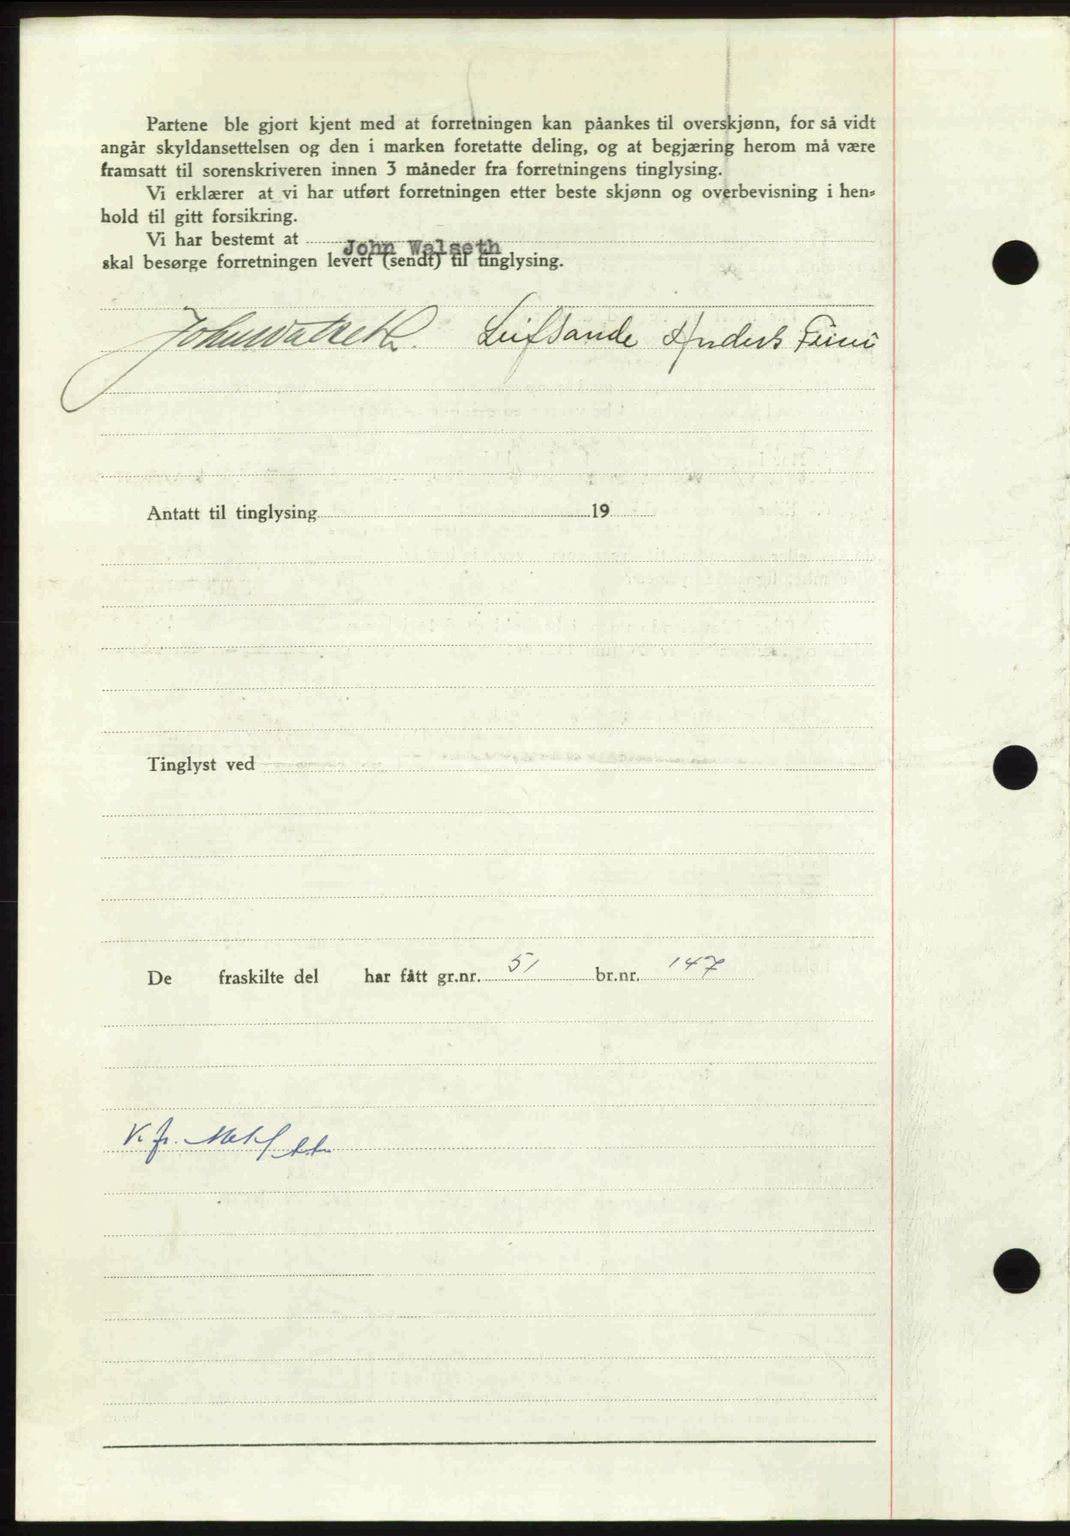 Partene ble gjort kjent med at forretningen kan påankes til overskjønn, for så vidt
angår skyldansettelsen og den i marken foretatte deling, og at begjæring herom må være
framsatt til sorenskriveren innen 3 måneder fra forretningens tinglysing.
Vi erklærer at vi har utført forretningen etter beste skjønn og overbevisning i hen-
hold til gitt forsikring.
Vi har bestemt at John Walseth
skal besørge forretningen levert (sendt) til tinglysing.
John Walseth. Leif Sande Anders
Antatt til tinglysing 19
Tinglyst ved
De fraskilte del har fått gr.nr. 51 br.nr. 147